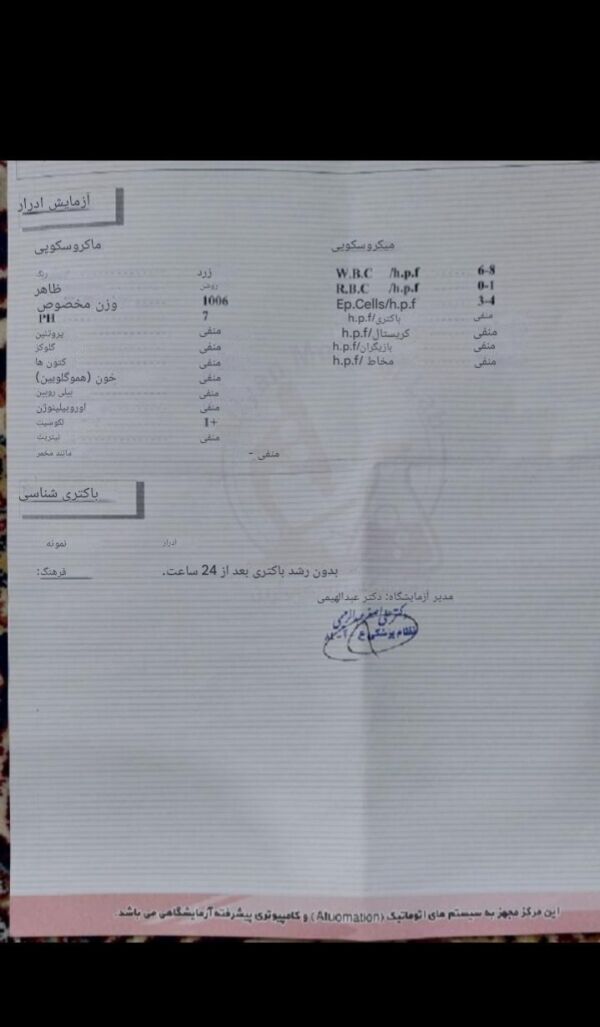 آزمایش ادرار
ماکروسکوپی
رنگ زرد
ظاهر روشن
وزن مخصوص 1006
PH 7
پروتئین منفی
گلوکز منفی
کتون ها منفی
خون (هموگلوبین) منفی
بیلی روبین منفی
اوروبیلینوژن منفی
لکوسیت 1+
نیتریت منفی
مانند مخمر - منفی
میکروسکوپی
W.B.C /h.p.f 6-8
R.B.C /h.p.f 0-1
Ep.Cells/h.p.f 3-4
باکتری/h.p.f منفی
کریستال/h.p.f منفی
بازیگران/h.p.f منفی
مخاط /h.p.f منفی
باکتری شناسی
نمونه ادرار
فرهنگ: بدون رشد باکتری بعد از 24 ساعت.
مدیر آزمایشگاه: دکتر عبدالهیمی
این مرکز مجهز به سیستم های اتوماتیک (Aluomation) و کامپیوتری پیشرفته آزمایشگاهی می باشد.